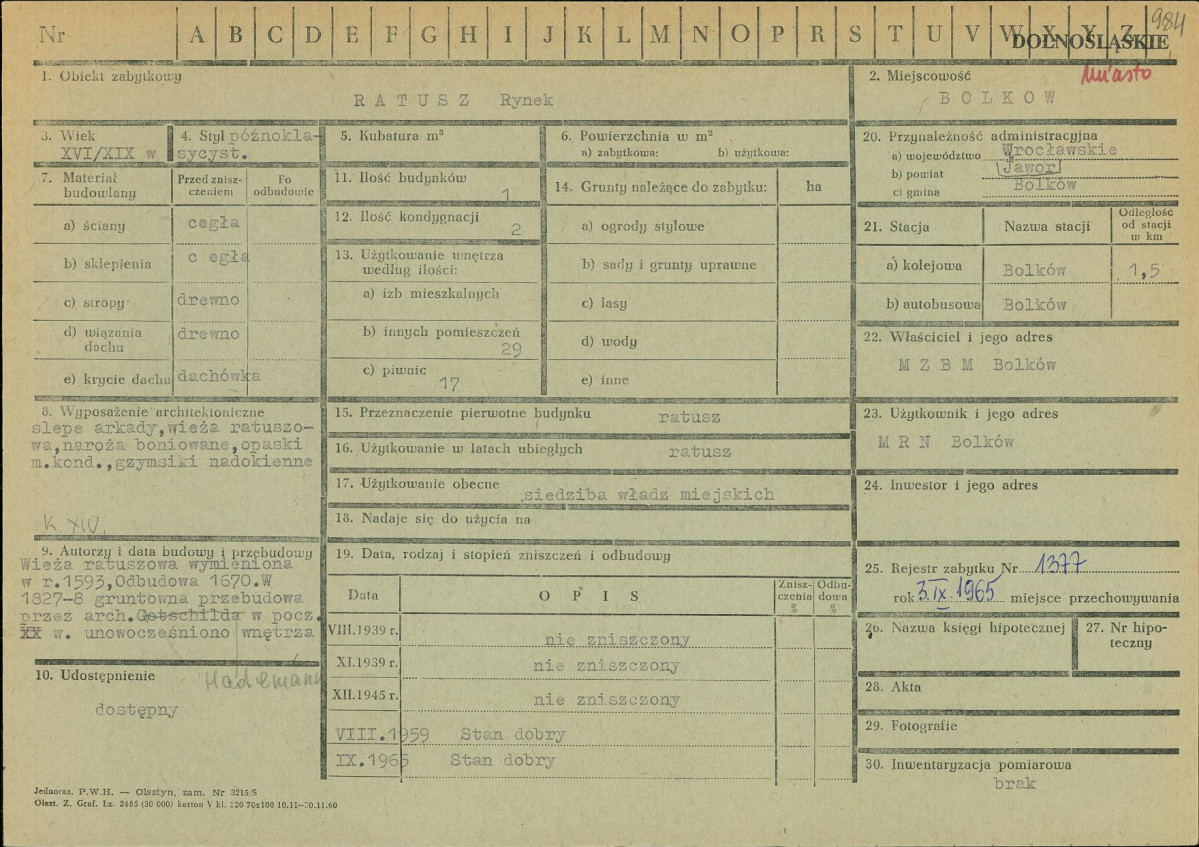 Nr A B C D E F G H I J K L M N O P R S T U V W X Y Z 984
DOLNOŚLĄSKIE
1. Obiekt zabytkowy
RATUSZ Rynek
2. Miejscowość miasto
BOLKOW
3. Wiek
XVI/XIX w
4. Styl późnokla-
sycyst.
5. Kubatura m³
6. Powierzchnia w m²
a) zabytkowa: b) użytkowa:
20. Przynależność administracyjna
a) województwo Wrocławskie
b) powiat Jawor
c) gmina Bolków
7. Materiał budowlany
Przed znisz-
czeniem
Po
odbudowie
a) ściany cegła
b) sklepienia c egła
c) stropy drewno
d) wiązania
dachu drewno
e) krycie dachu dachówka
11. Ilość budynków
1
12. Ilość kondygnacji
2
13. Użytkowanie wnętrza
według ilości:
a) izb mieszkalnych
b) innych pomieszczeń
29
c) piwnic
17
14. Grunty należące do zabytku: ha
a) ogrody stylowe
b) sady i grunty uprawne
c) lasy
d) wody
e) inne
21. Stacja Nazwa stacji
Odległość
od stacji
w km
a) kolejowa Bolków 1,5
b) autobusowa Bolków
22. Właściciel i jego adres
M Z B M Bolków
8. Wyposażenie architektoniczne
slepe arkady,wieża ratuszo-
wa,naroża boniowane,opaski
m.kond.,gzymsiki nadokienne
K XIV
15. Przeznaczenie pierwotne budynku ratusz
16. Użytkowanie w latach ubiegłych ratusz
17. Użytkowanie obecne siedziba władz miejskich
18. Nadaje się do użycia na
23. Użytkownik i jego adres
MRN Bolków
24. Inwestor i jego adres
9. Autorzy i data budowy i przebudowy
Wieża ratuszowa wymieniona
w r.1593,Odbudowa 1670.W
1827-8 gruntowna przebudowa
przez arch.Gotschilda w pocz.
XX w. unowocześniono wnętrza
10. Udostępnienie
dostępny
19. Data, rodzaj i stopień zniszczeń i odbudowy
Data OPIS
Znisz-
czenia
%
Odbu-
dowa
%
VIII.1939 r. nie zniszczony
XI.1939 r. nie zniszczony
XII.1945 r. nie zniszczony
VIII.1959 Stan dobry
IX.1965 Stan dobry
25. Rejestr zabytku Nr 1377
rok 3.IX.1965 miejsce przechowywania
26. Nazwa księgi hipotecznej
27. Nr hipo-
teczny
28. Akta
29. Fotografie
30. Inwentaryzacja pomiarowa
brak
Jednoraz. P.W.H. — Olsztyn, zam. Nr 3215/S
Olszt. Z. Graf. Lz. 2485 (30 000) karton V kl. 220 70x100 10.11—30.11.60